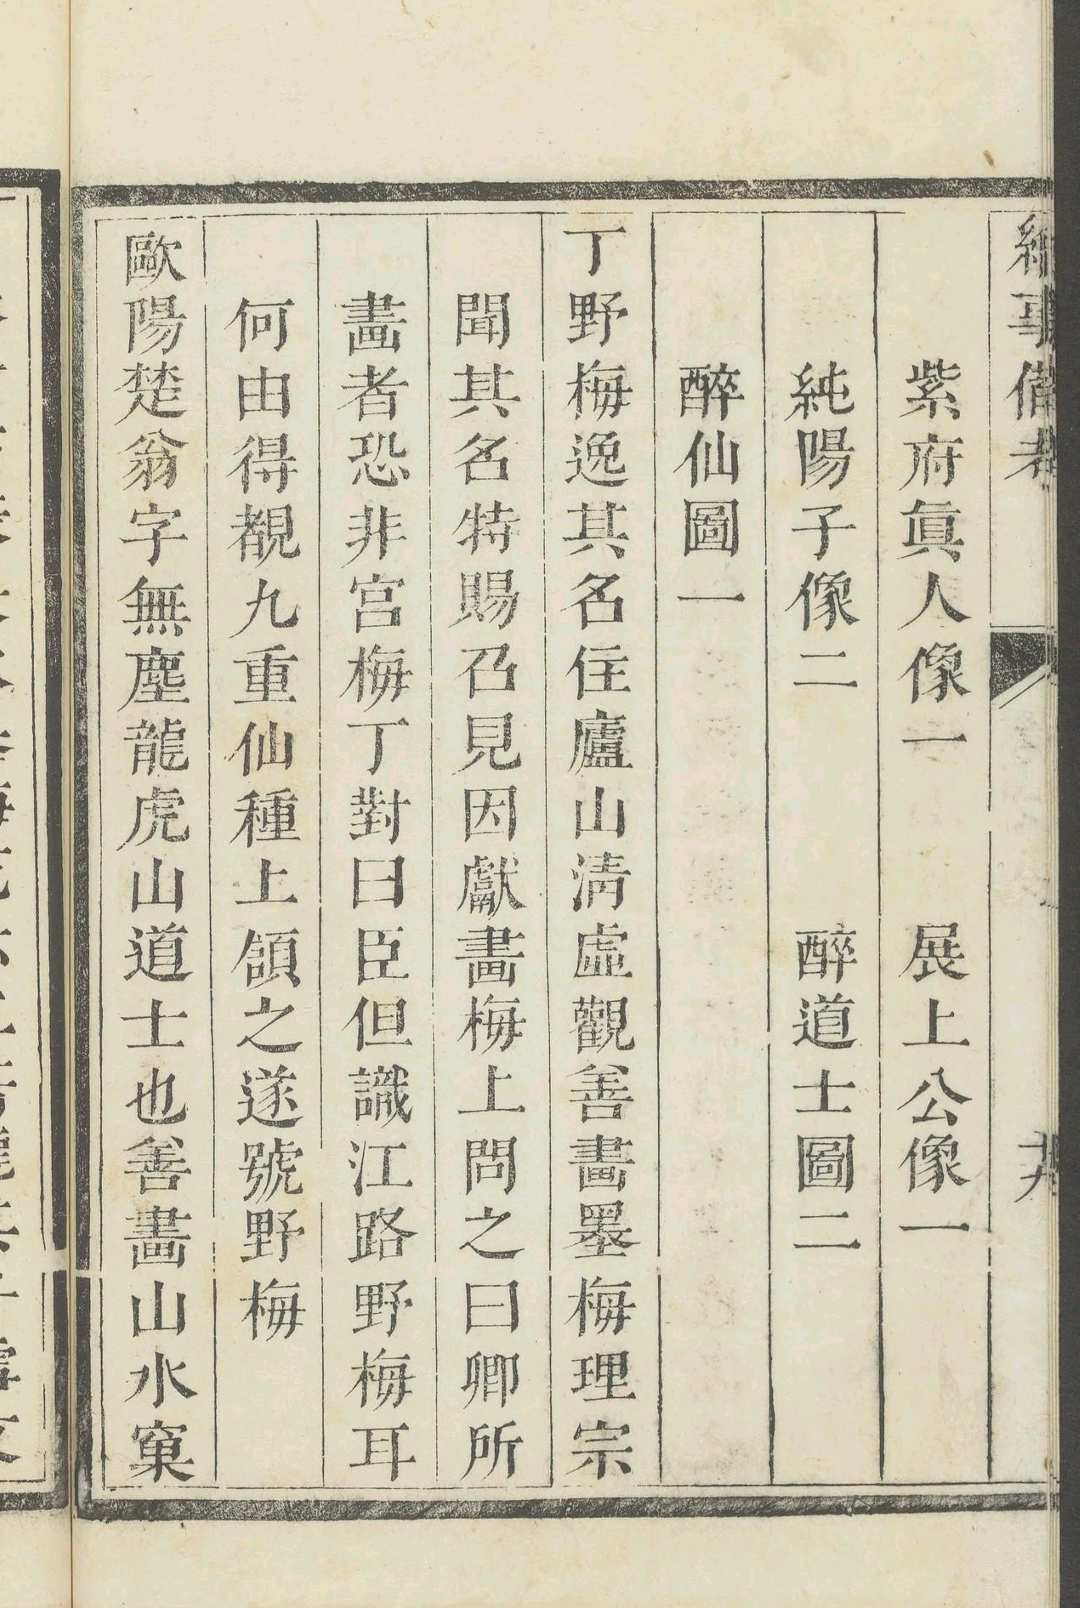 繪事備考
紫府眞人像一　展上公像一
純陽子像二　醉道士圖二
醉仙圖一
丁野梅逸其名住廬山清虛觀善畫墨梅理宗
聞其名特賜召見因獻畫梅上問之曰卿所
畫者恐非宮梅丁對曰臣但識江路野梅耳
何由得覩九重仙種上頷之遂號野梅
歐陽楚翁字無塵龍虎山道士也善畫山水窠